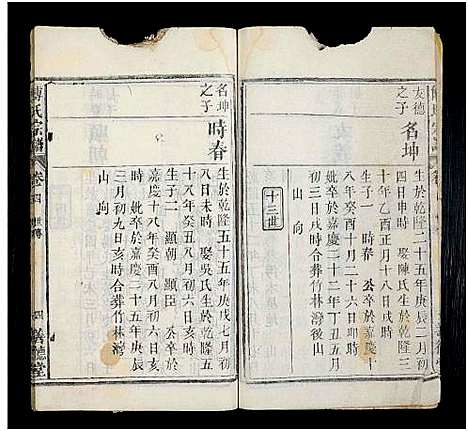 友德
之子
名坤
生於乾隆二十五年庚辰二月初
四日申時 娶陳氏生於乾隆三
十年乙酉正月十八日卯時
生子一 時春 公卒於嘉慶十
八年癸酉八月二十六日卯時
妣卒於嘉慶二十二年丁丑五月
初三日戌時合葬竹林灣後山
山 向
十三世
名坤
之子
時春
生於乾隆五十五年庚戌七月初
八日未時 娶吳氏生於乾隆五
十八年癸丑八月初六日亥時
生子二 顯朝 顯臣 公卒於
嘉慶十八年癸酉八月初六日亥
時 妣卒於嘉慶二十五年庚辰
三月初九日亥時合葬竹林灣
山 向
傅氏宗譜
卷四
四
善德堂